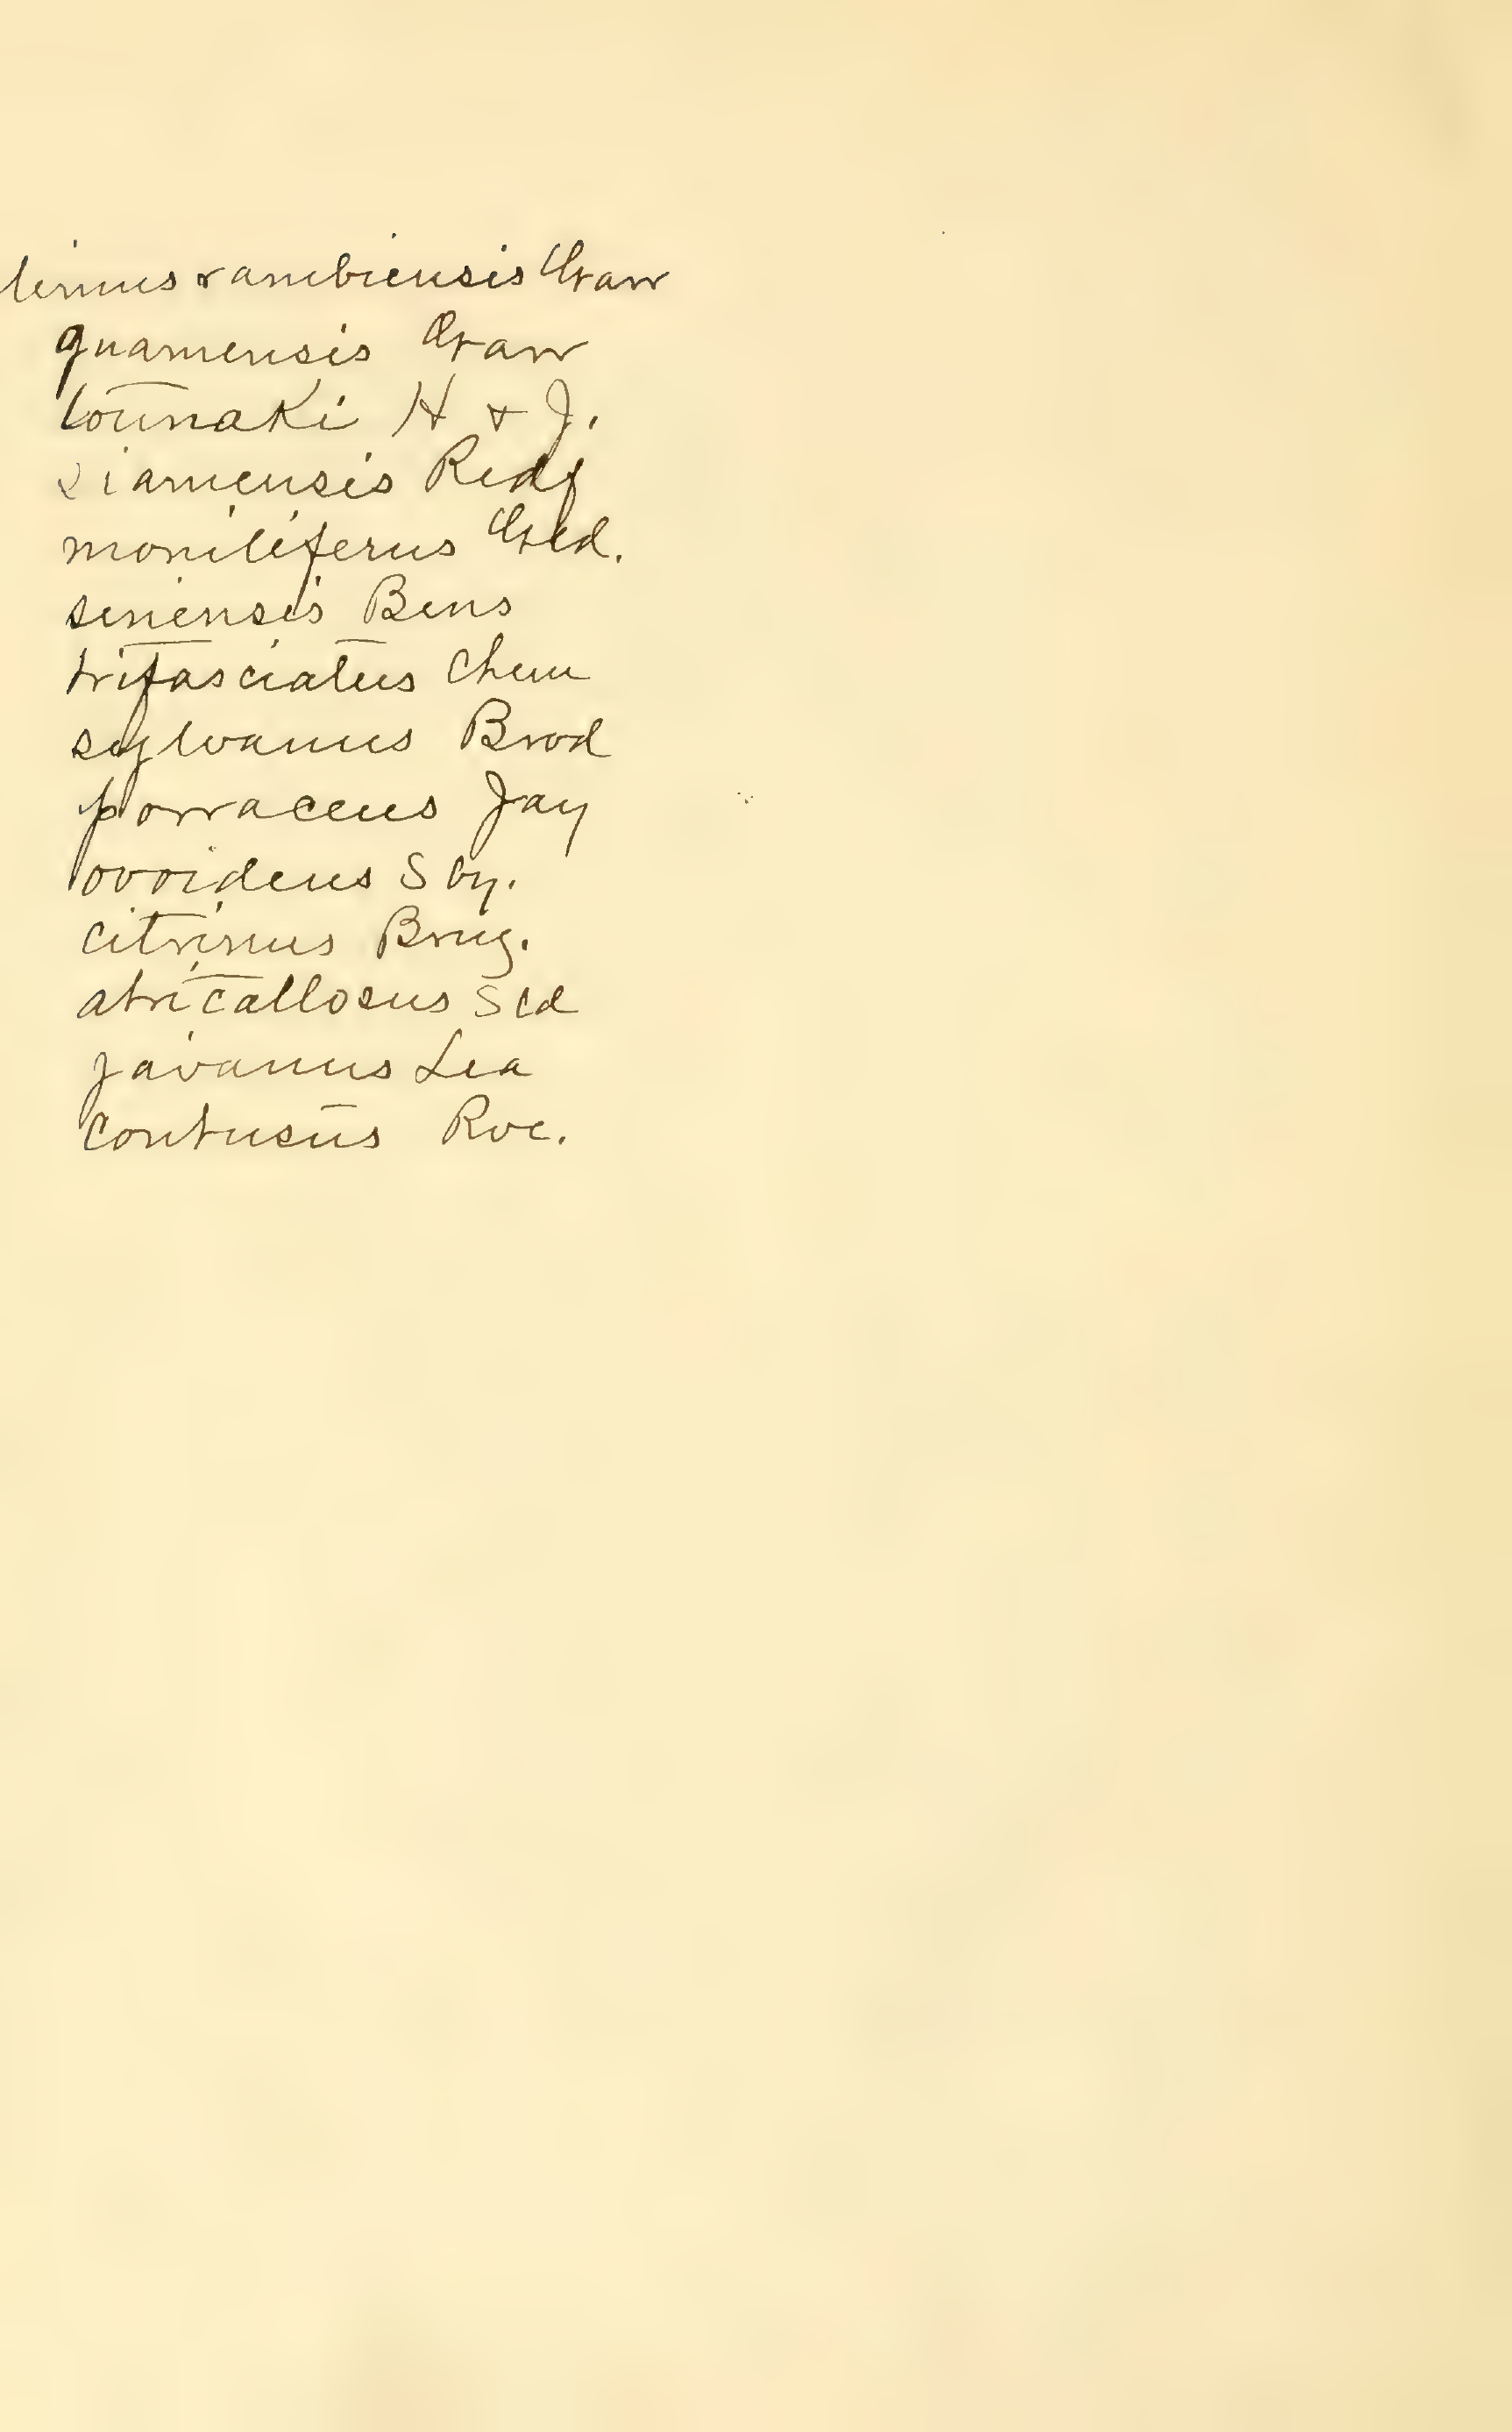 limus rambiensis Garr
guamensis Garr
tournaki H & J.
siamensis Redf
moniliferus Gld.
sinensis Bens
trifasciatus Chem
sylvanus Brod
porraceus Jay
ovoideus Sby.
citrinus Brug.
atricallosus Gld
javanus Lea
contusus Rve.